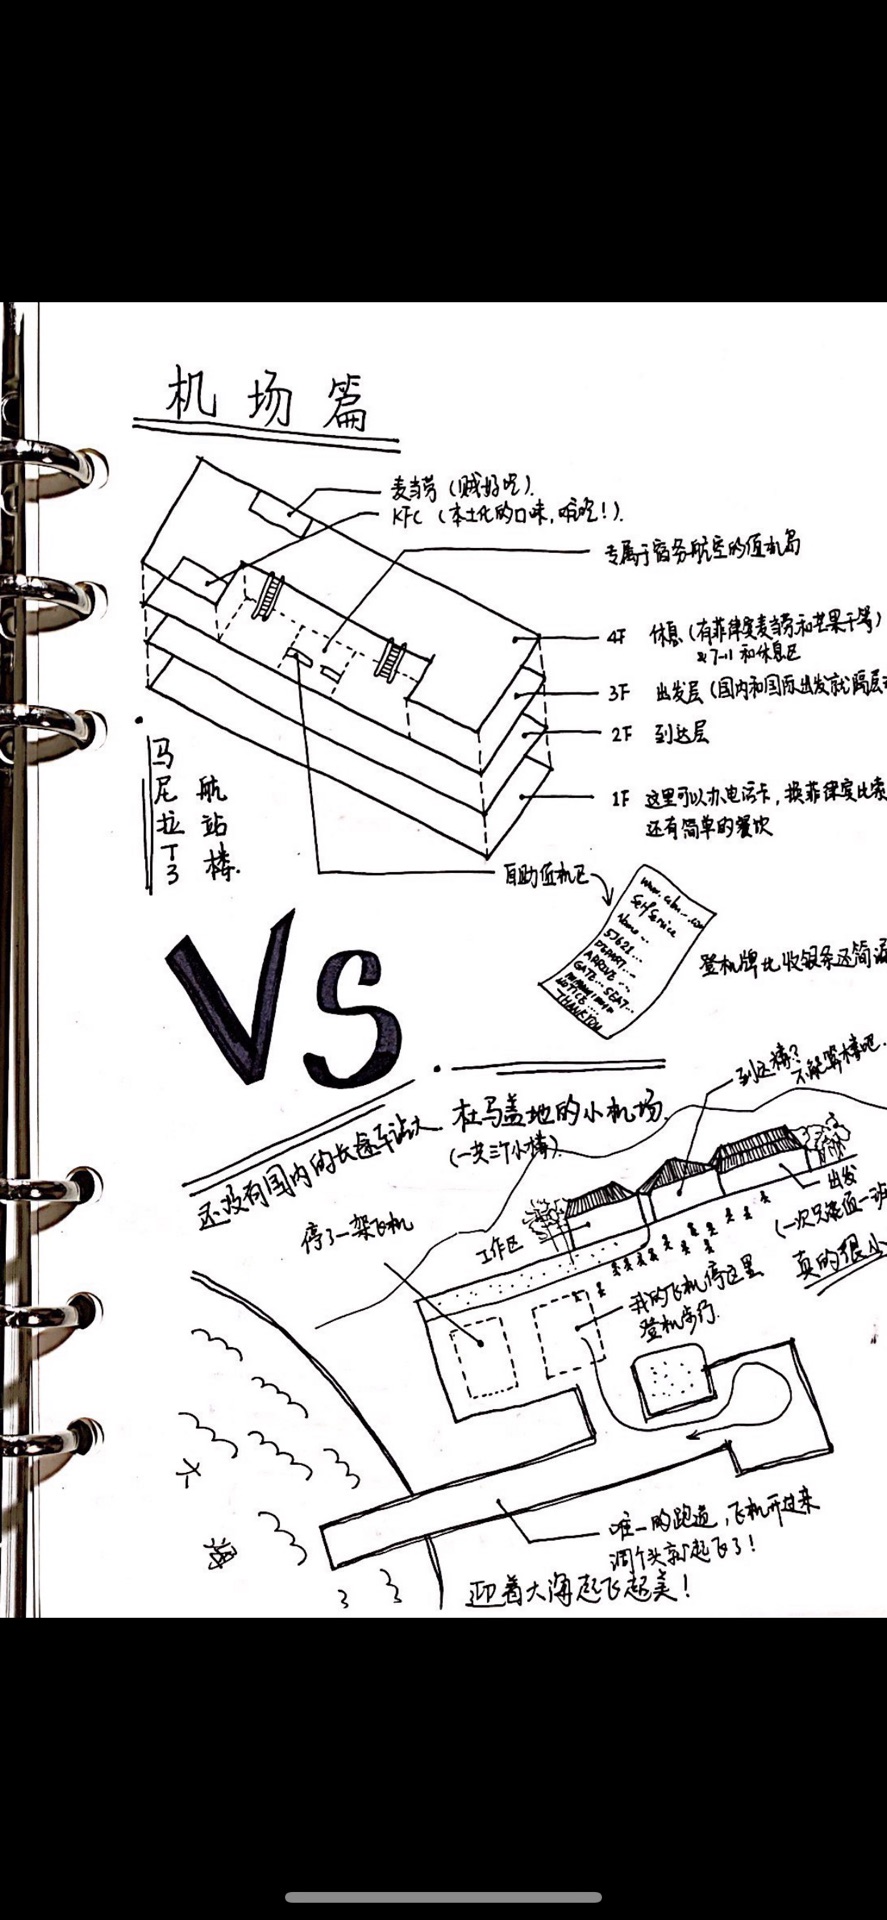 机场篇
麦当劳(贼好吃).
KFC(本土化的口味,难吃!).
专属于宿务航空的值机岛
4F 休息(有菲律宾麦当劳和芒果干等)
&7-11和休息区
3F 出发层(国内和国际出发就隔层
2F 到达层
1F 这里可以办电话卡,换菲律宾比索
还有简单的餐饮
马尼拉T3
航站楼.
自助值机区
Self Service
Name...
5J621...
DEPART...
ARRIVE...
GATE... SEAT...
NOTICE....
THANK YOU
登机牌比收银条还简
VS
到达楼?
不能算楼吧.
杜马盖地的小机场.
(一共三个小楼).
还没有国内的长途车站大.
停了一架飞机
工作区
出发
(一次只能值一班
真的很小
我的飞机停这里
登机步行.
大
海
唯一的跑道,飞机开过来
调个头就起飞了!
迎着大海起飞超美!